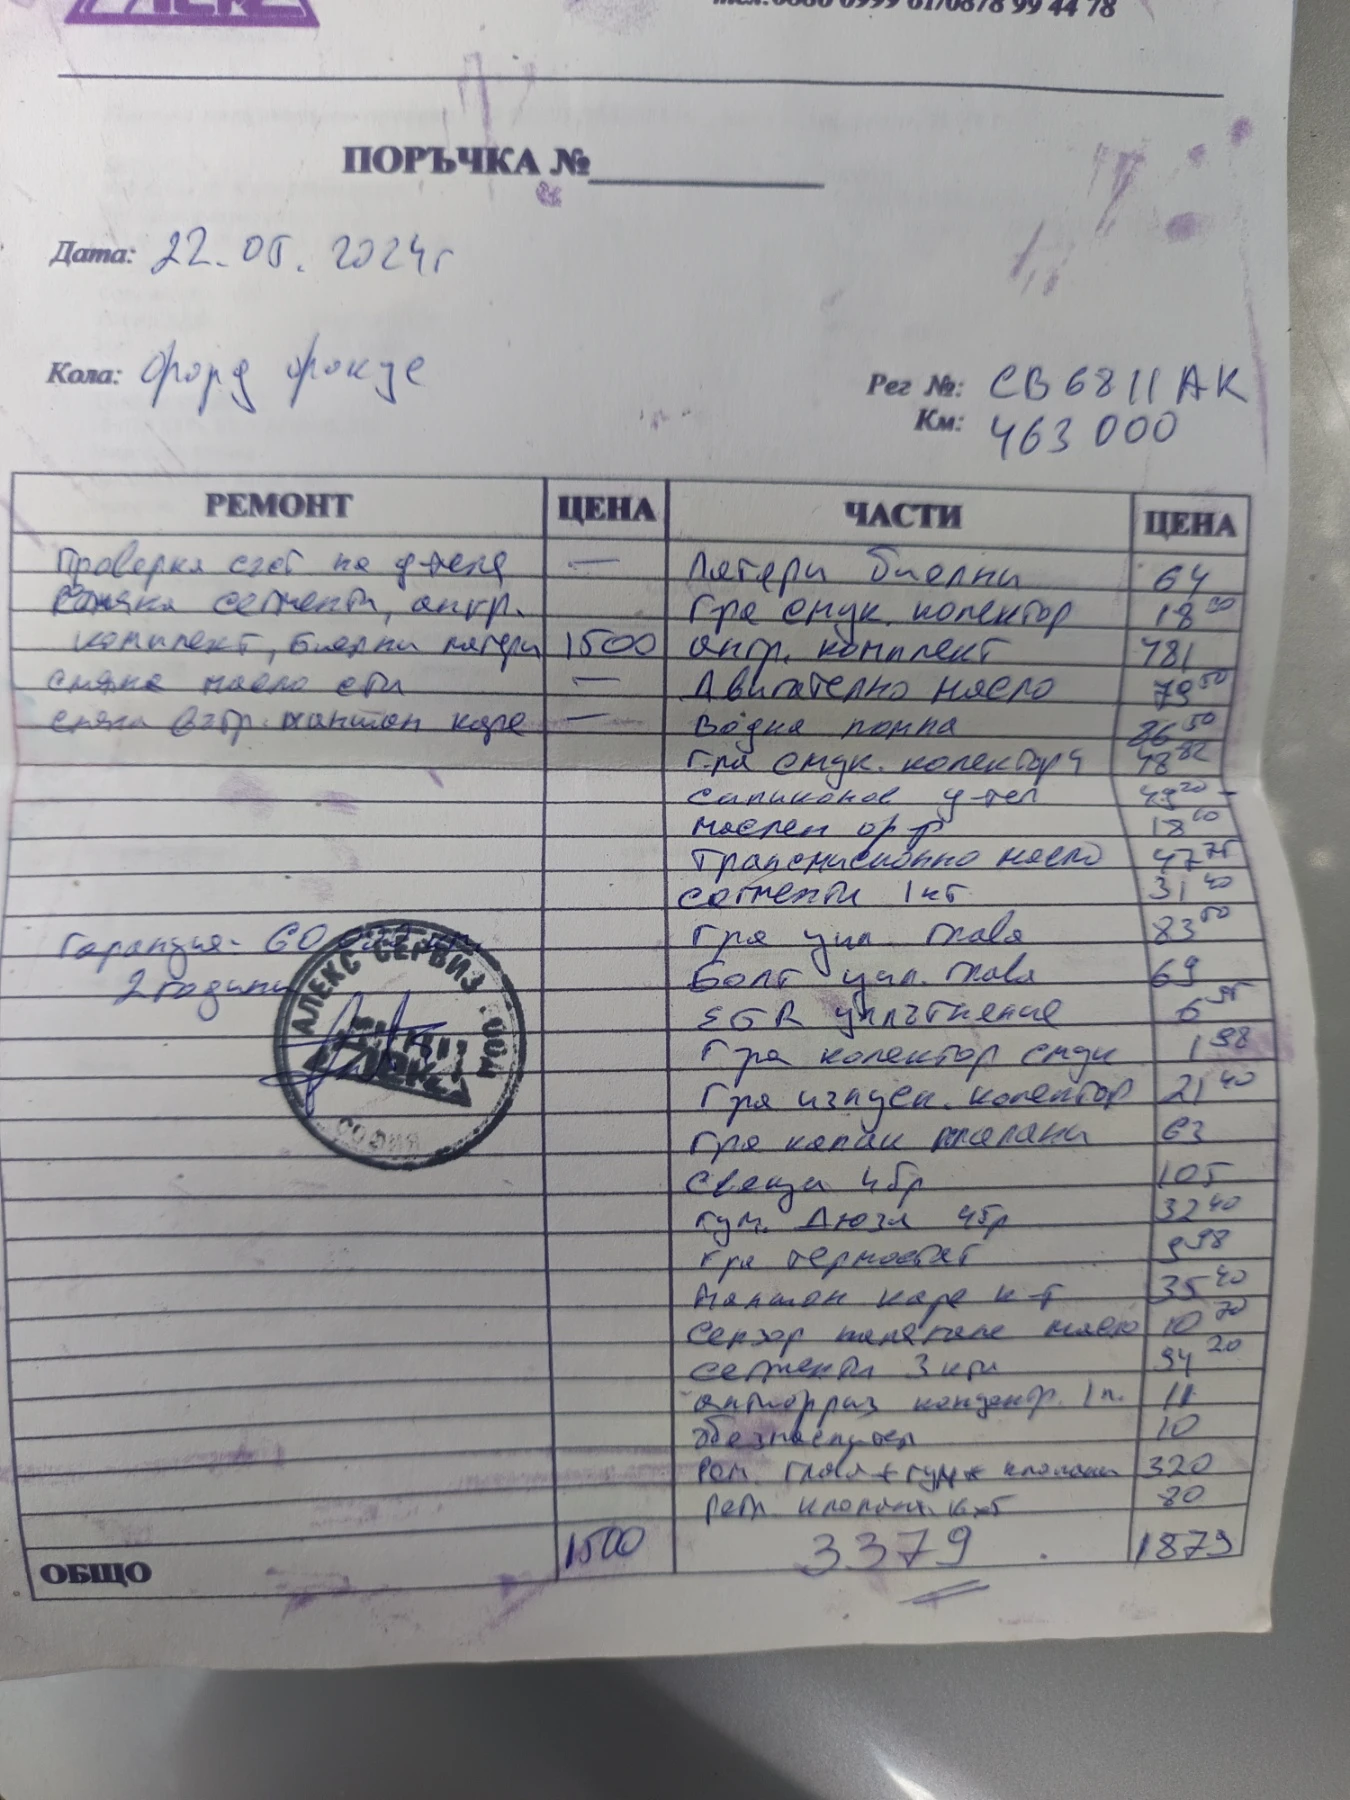 ПОРЪЧКА №
Дата: 22.05.2024г
Кола: Форд Фокус
Рег №: СВ6811АК
Км: 463 000
РЕМОНТ ЦЕНА ЧАСТИ ЦЕНА
Проверка сгст на д-теля — Лагери биелни 64
смяна сегменти, ангр. Гра смук. колектор
комплект, биелни лагери 1500 ангр. комплект
смяна масло сти — Двигателно масло 79 50
смяна вътр. маншон каре — Водна помпа 50
Г-ра смук. колектора 48 82
силиконов у-тел 49 20
маслен ф-р 18 60
Трансмисионно масло 47 75
сегменти 1 кт 31 40
Гаранция - 60 000 км Гра цил. глава 83 50
2 години Болт цил. глава 69
EGR уплътнение 6 95
Гра колектор смук 1 98
Гра изпуск. колектор 21 40
Гра капак клапани 63
Свещи 4бр 105
гум. Дюзи 4бр 32 40
Гра термостат 9 98
Маншон каре к-т 35 40
Сензор налягане масло 10 70
сегменти 3 кти 94 20
антифриз концентр. 1л. 11
обезмаслител 10
Рем. глава + гум + клапани 320
клапани к-т 80
ОБЩО 1500 3379 1879
АЛЕКС СЕРВИЗ
СОФИЯ